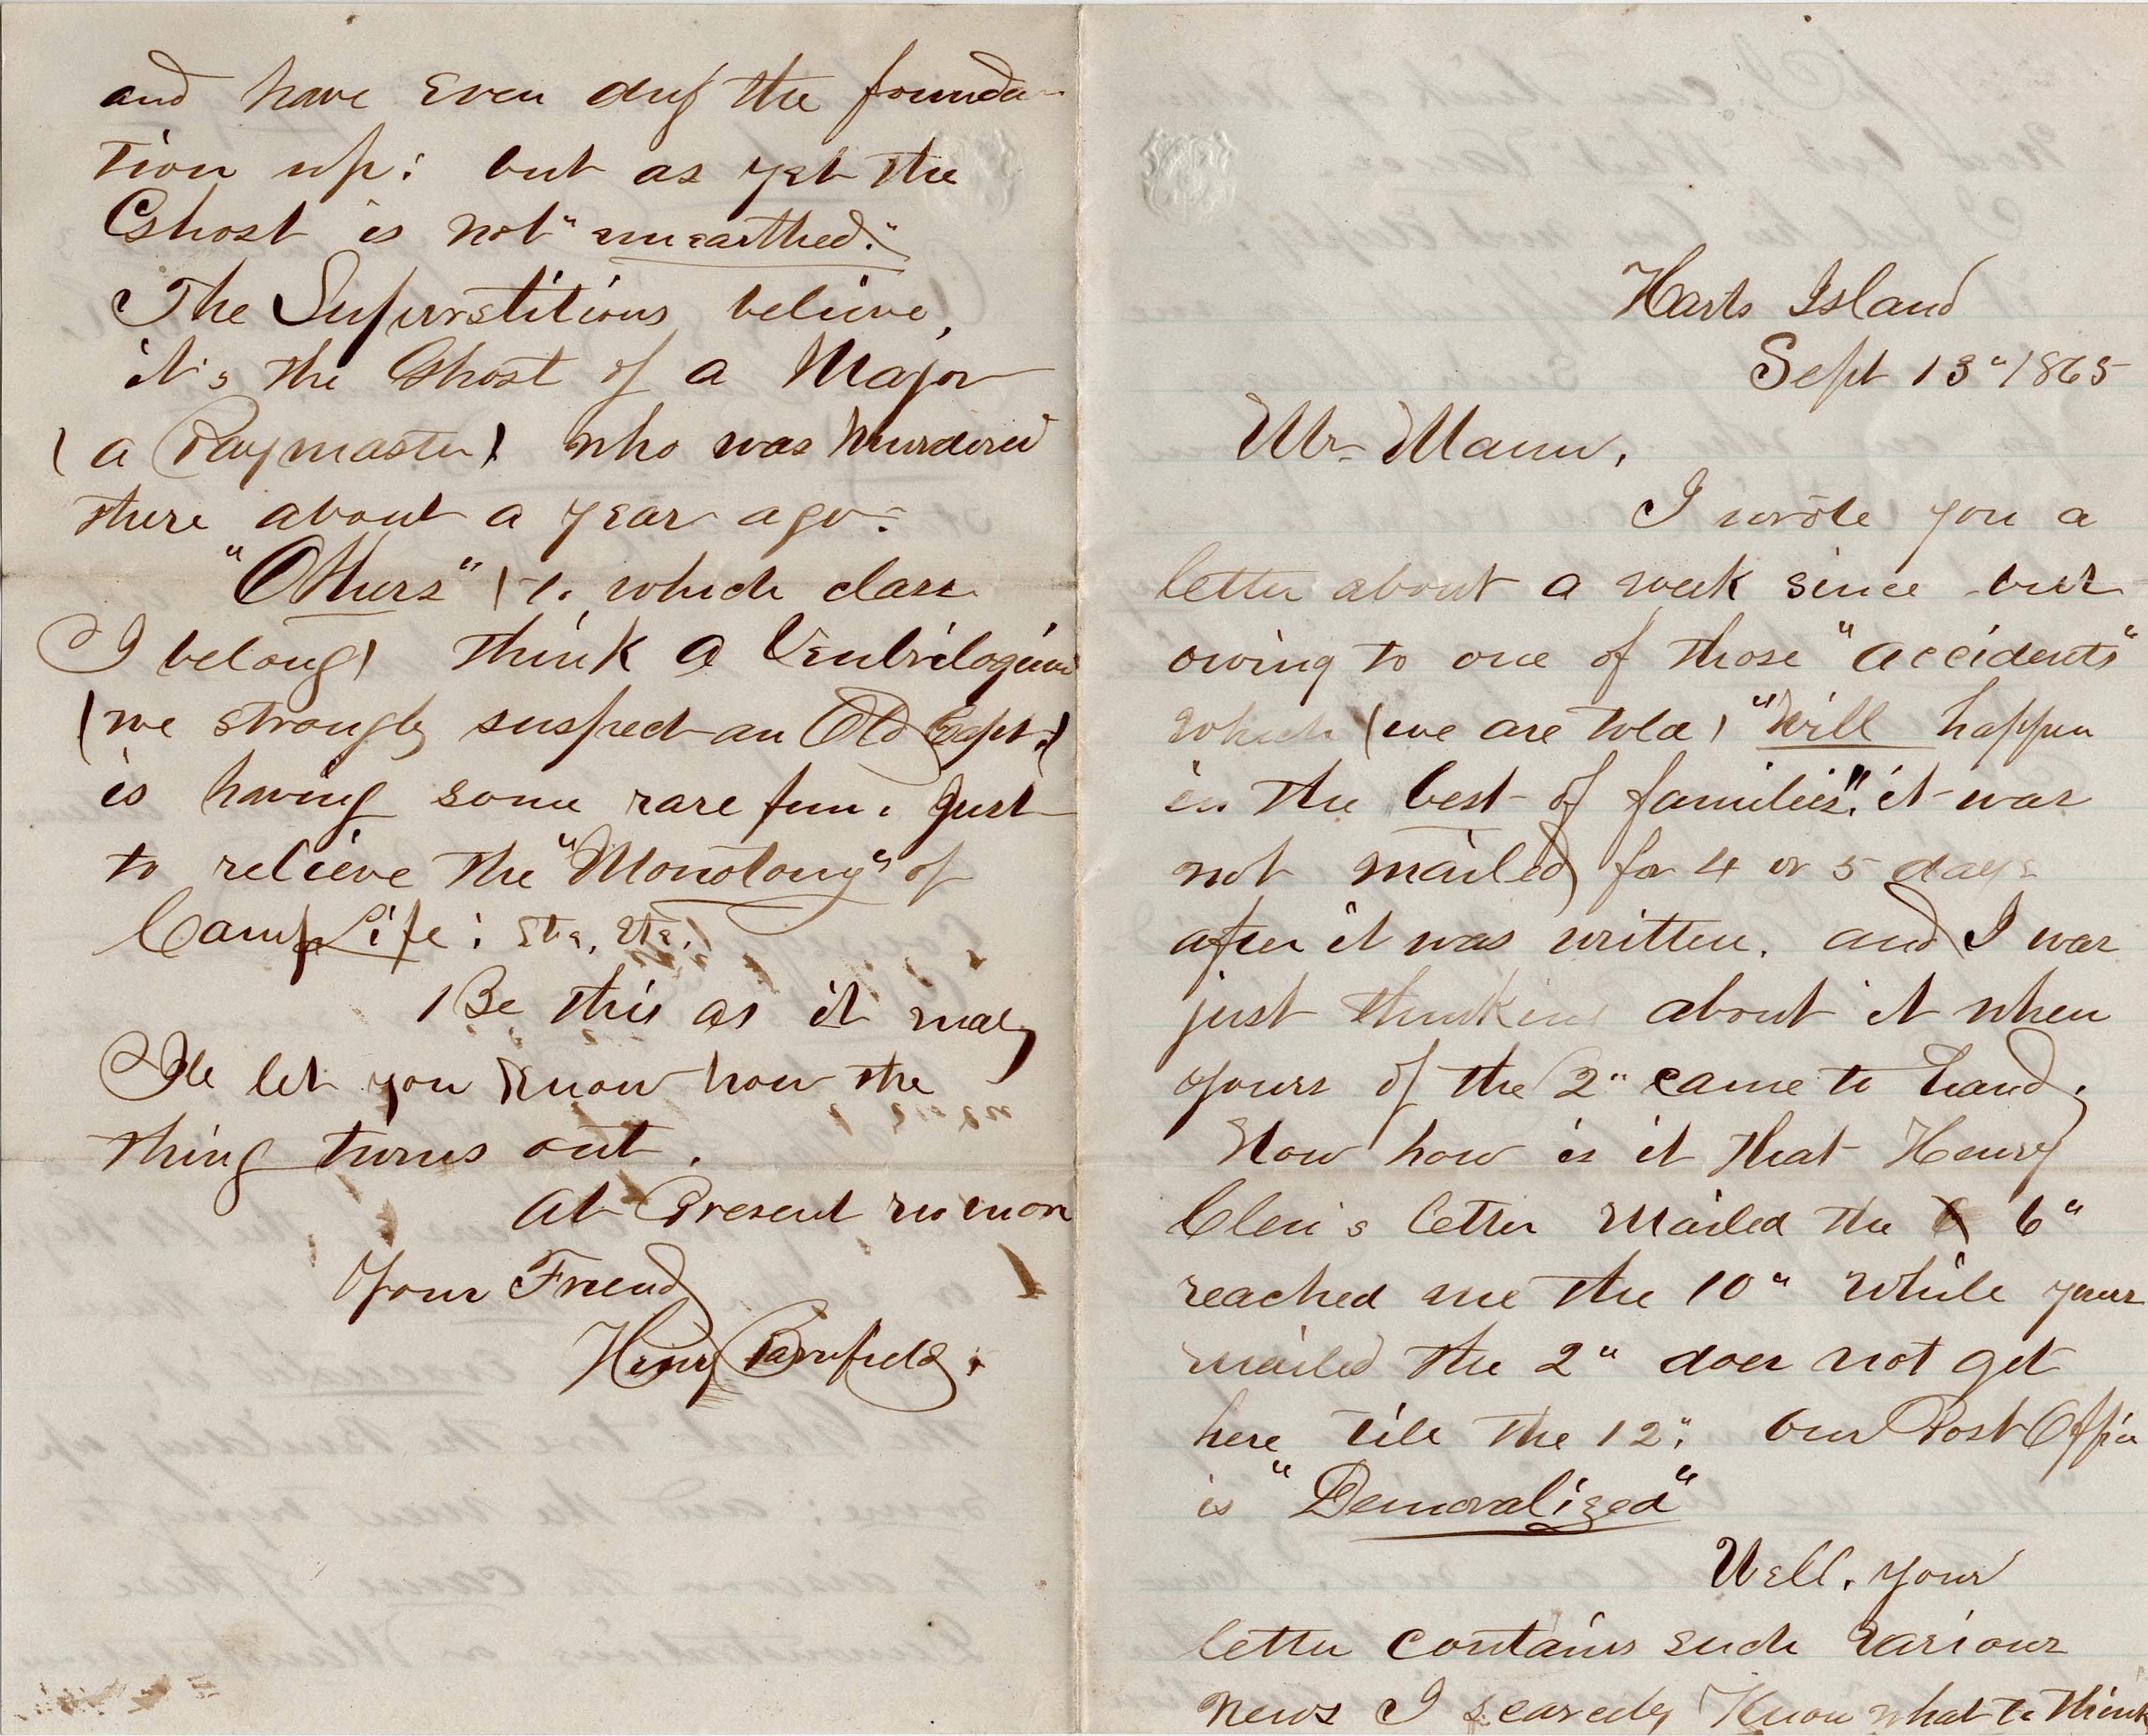 and have Even dug the founda-
tion up: but as yet the
Ghost is not "unearthed."
The Superstitious believe,
it's the Ghost of a Major
(a Paymaster) who was Murdered
there about a year ago.
"Others" (to which class
I belong) think a Ventriloquist
(we strongly suspect an Old Capt.)
is having some rare fun, just
to relieve the "Monotony" of
Camp Life; Etc, Etc.
Be this as it may
Ile let you Know how the
thing turns out.
At Present no more
Your Friend
Henry
Harts Island
Sept 13" 1865
Mr Mann,
I wrote you a
letter about a week since but
owing to one of those "accidents"
which (we are told) "Will happen
in the best of families", it was
not mailed for 4 or 5 days
after it was written. and I was
just thinking about it when
yours of the 2" came to hand.
Now how is it that Henry
Clen's letter Mailed the 6"
reached me the 10" while yours
mailed the 2" does not get
here till the 12", Our Post Office
is "Demoralized"
Well, your
letter contains such various
news I scarcely Know what to think